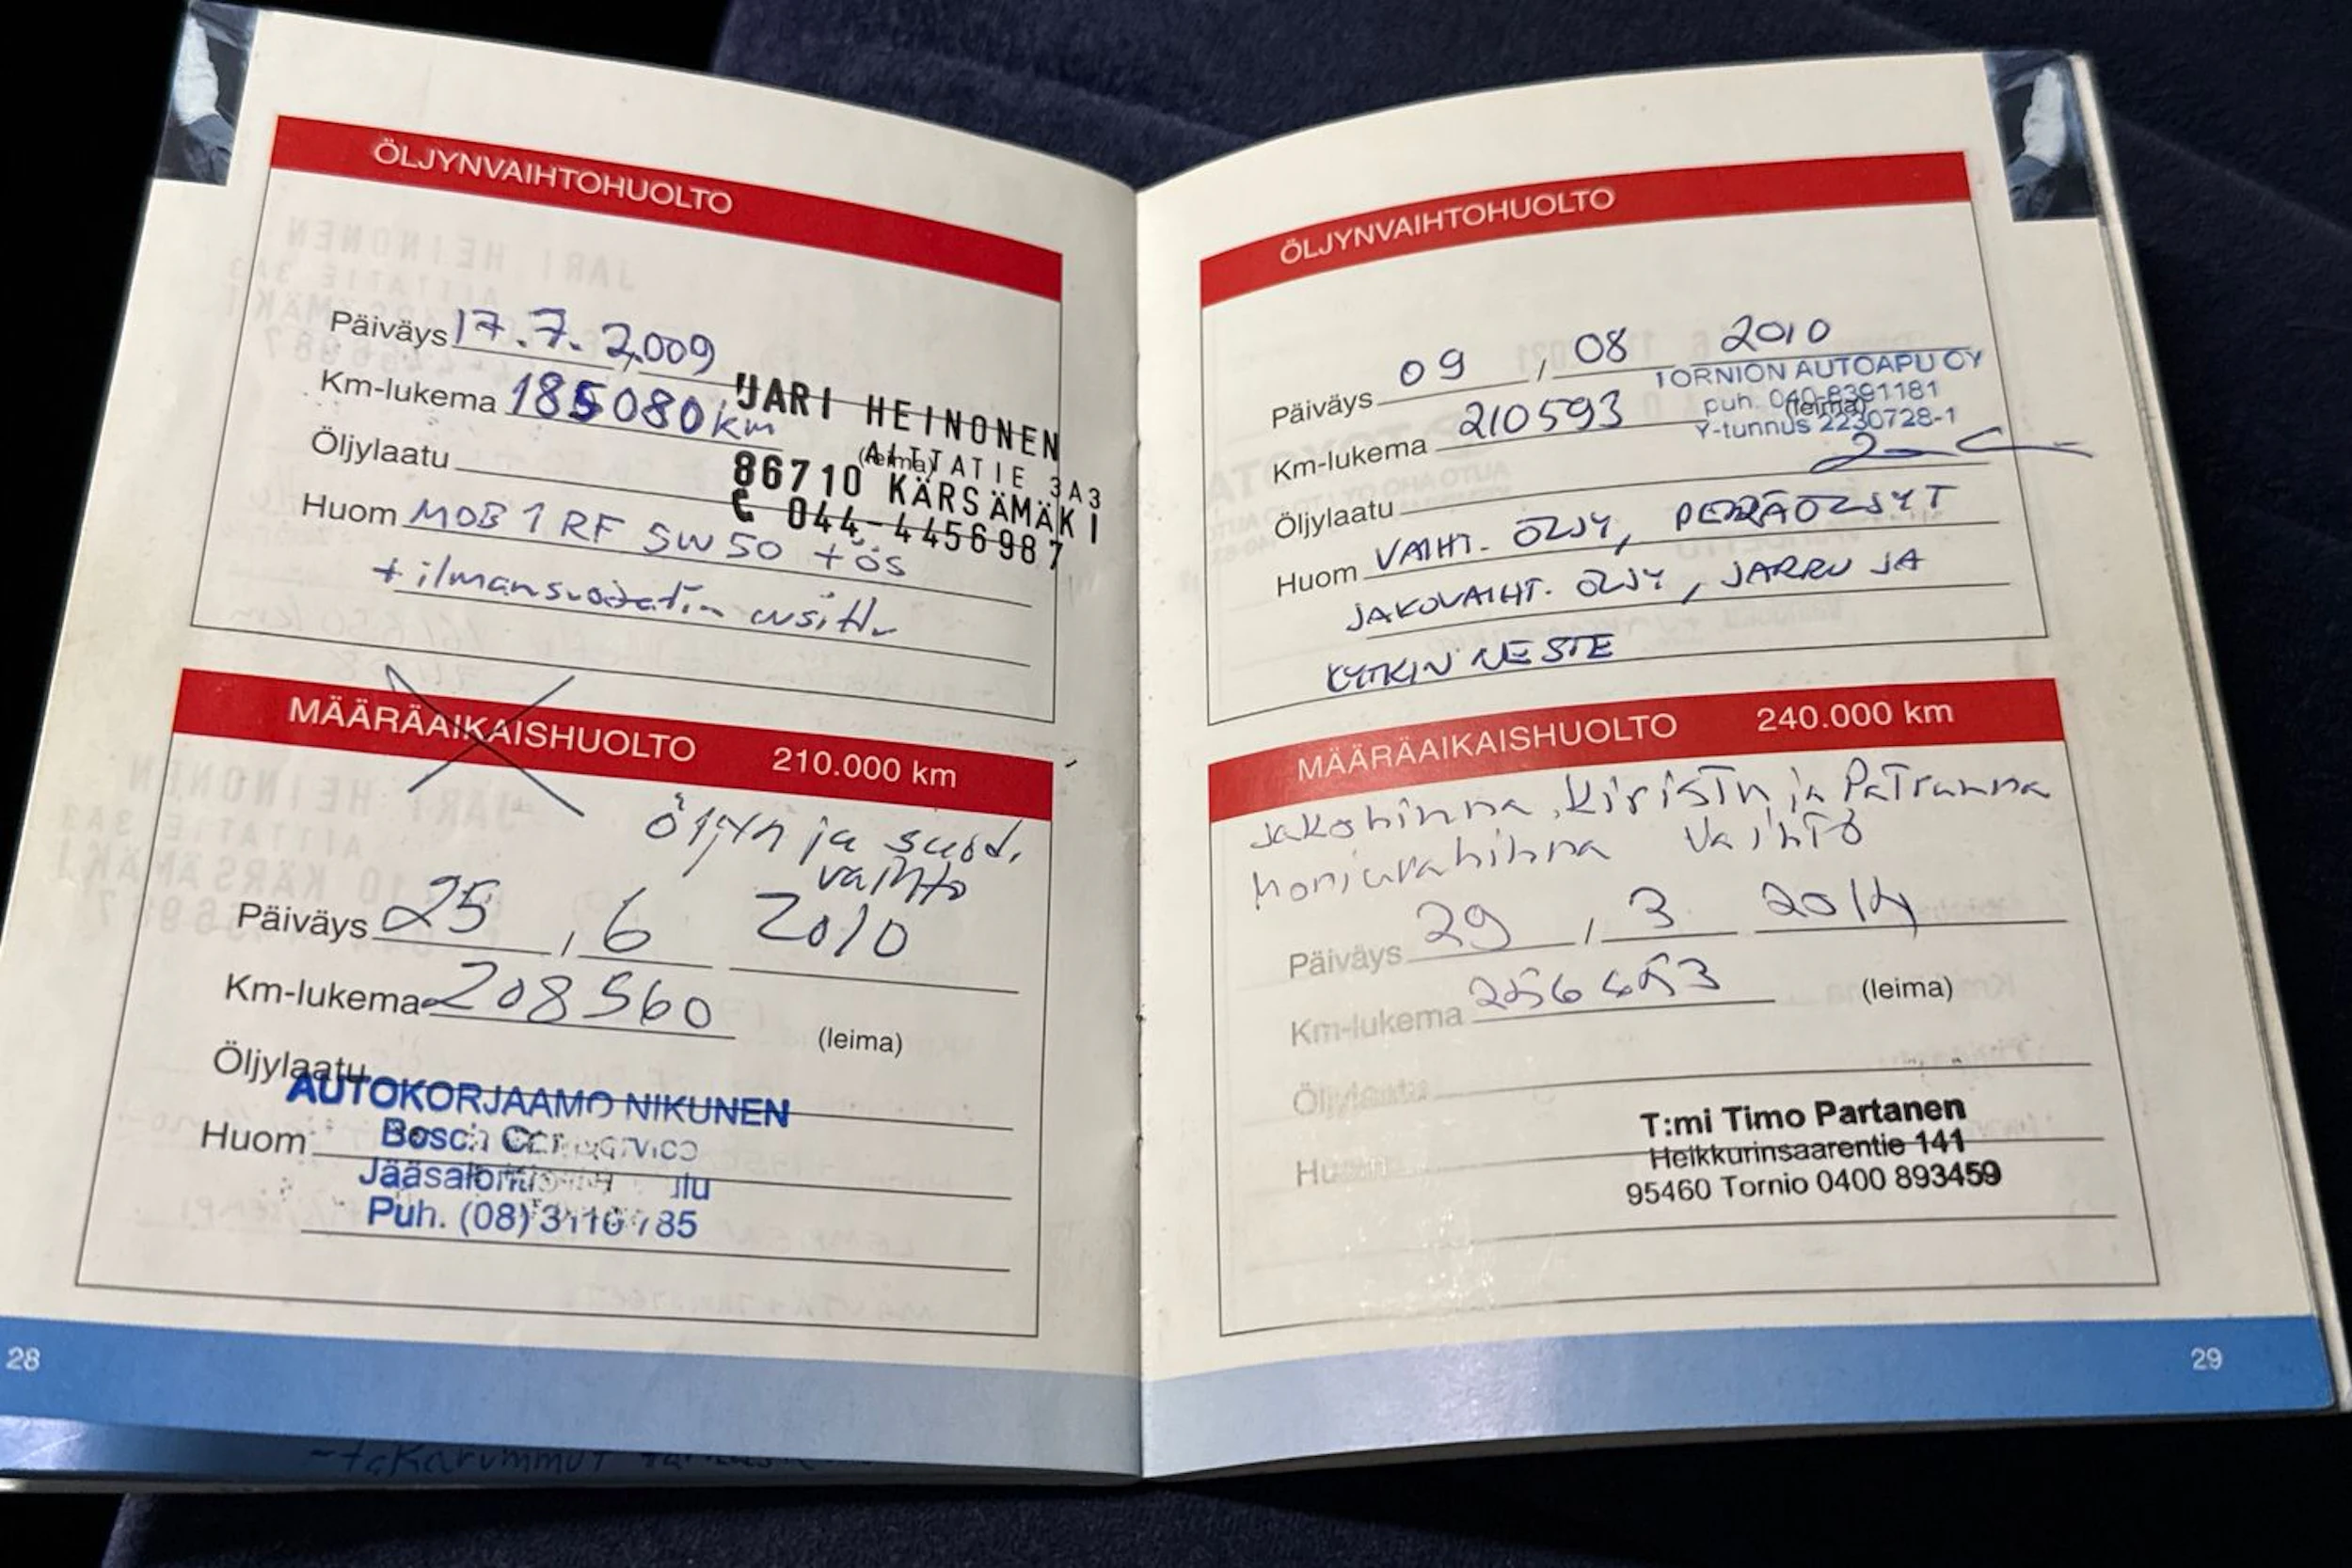 ÖLJYNVAIHTOHUOLTO
Päiväys 17.7.2009
Km-lukema 185080 km
JARI HEINONEN
(leima)
AITTATIE 3A3
86710 KÄRSÄMÄKI
044-4456987
Öljylaatu
Huom MOB 1 RF 5W50 + ös
+ ilmansuodatin
MÄÄRÄAIKAISHUOLTO 210.000 km
öljyn ja suod.
vaihto
Päiväys 25, 6 2010
Km-lukema 208560
(leima)
Öljylaatu
AUTOKORJAAMO NIKUNEN
Huom
Bosch Car Service
Puh. (08)
28
ÖLJYNVAIHTOHUOLTO
Päiväys 09, 08 2010
TORNION AUTOAPU OY
puh. 040-8391181
(leima)
Y-tunnus 2230728-1
Km-lukema 210593
Öljylaatu
Huom VAIHT. ÖLJY, PERÄÖLJYT
JAKOVAIHT. ÖLJY, JARRU JA
KYTKIN NESTE
MÄÄRÄAIKAISHUOLTO 240.000 km
Jakohihna, Kiristin ja
vaihto
Päiväys 29, 3 2014
Km-lukema
(leima)
Öljylaatu
Huom
T:mi Timo Partanen
Heikkurinsaarentie 141
95460 Tornio 0400 893459
29